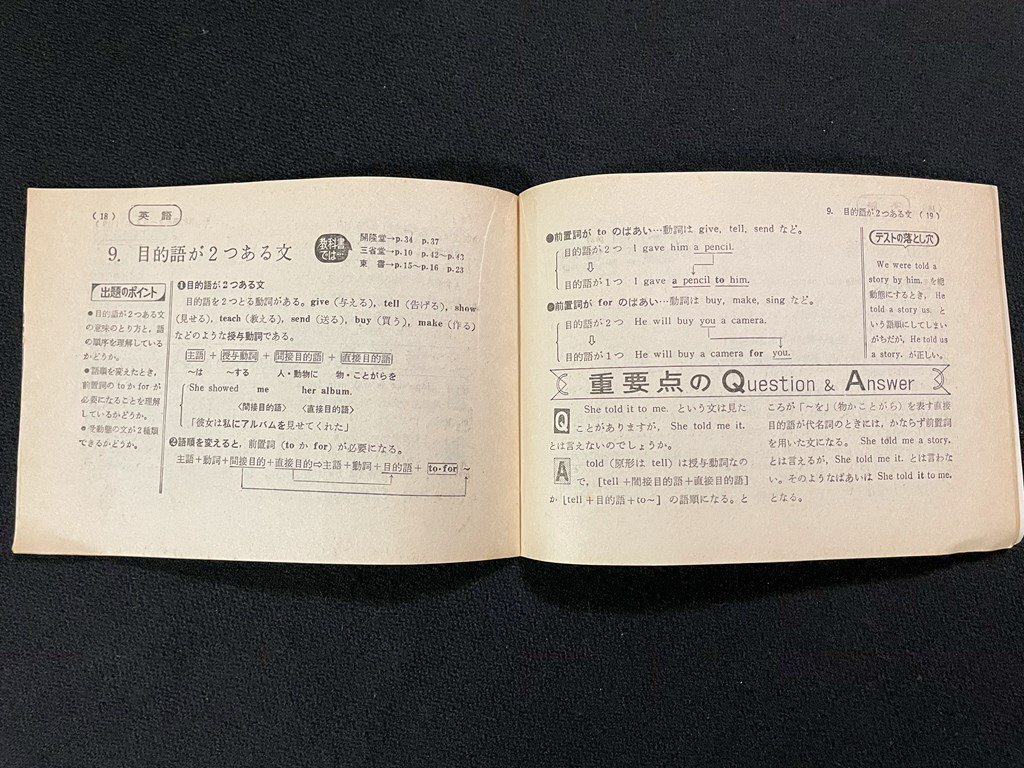 (18) 英語
9. 目的語が2つある文
教科書では…
開隆堂→p.34 p.37
三省堂→p.10 p.42〜p.43
東 書→p.15〜p.16 p.23
出題のポイント
●目的語が2つある文
の意味のとり方と，語
の順序を理解している
かどうか。
●語順を変えたとき，
前置詞の to か for が
必要になることを理解
しているかどうか。
●受動態の文が2種類
できるかどうか。
❶目的語が2つある文
目的語を2つとる動詞がある。give（与える），tell（告げる），show
（見せる），teach（教える），send（送る），buy（買う），make（作る）
などのような授与動詞である。
主語＋授与動詞＋間接目的語＋直接目的語
〜は 〜する 人・動物に 物・ことがらを
She showed me her album.
〈間接目的語〉 〈直接目的語〉
「彼女は私にアルバムを見せてくれた」
❷語順を変えると，前置詞（to か for）が必要になる。
主語＋動詞＋間接目的＋直接目的⇨主語＋動詞＋目的語＋to・for〜
9. 目的語が2つある文（19）
●前置詞が to のばあい…動詞は give, tell, send など。
目的語が2つ I gave him a pencil.
⇩
目的語が1つ I gave a pencil to him.
●前置詞が for のばあい…動詞は buy, make, sing など。
目的語が2つ He will buy you a camera.
⇩
目的語が1つ He will buy a camera for you.
テストの落とし穴
We were told a
story by him. を能
動態にするとき，He
told a story us. と
いう語順にしてしまい
がちだが，He told us
a story. が正しい。
重要点の Question & Answer
Q She told it to me. という文は見た
ことがありますが，She told me it.
とは言えないのでしょうか。
A told（原形は tell）は授与動詞なの
で，[tell＋間接目的語＋直接目的語]
か [tell＋目的語＋to〜] の語順になる。と
ころが「〜を」（物かことがら）を表す直接
目的語が代名詞のときには，かならず前置詞
を用いた文になる。She told me a story.
とは言えるが，She told me it. とは言わな
い。そのようなばあいは She told it to me.
となる。